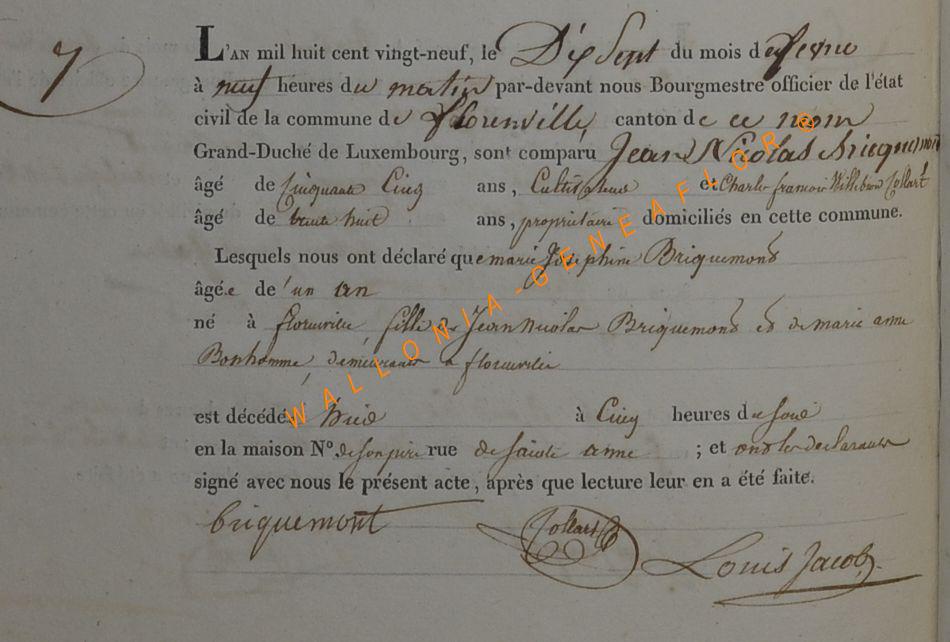 7
L'AN mil huit cent vingt-neuf, le Dix Sept du mois de
à neuf heures du matin par-devant nous Bourgmestre officier de l'état
civil de la commune de florenville, canton de ce nom
Grand-Duché de Luxembourg, sont comparu Jean Nicolas Bricquemont
âgé de Cinquante Cinq ans, Cultivateur et Charles francois Willibrord Collart
âgé de trente huit ans, propriétaire domiciliés en cette commune.
Lesquels nous ont déclaré que marie Josephine Briquemond
âgée de un an
né à florenville fille de Jean Nicolas Briquemond et de marie anne
Bonhomme demeurant a florenville
est décédé à Cinq heures du soir
en la maison N° de son pere rue de sainte anne ; et ont les declarants
signé avec nous le présent acte, après que lecture leur en a été faite.
briquemont
Collart
Louis Jacob
WALLONIA-GENEAFLOR ®